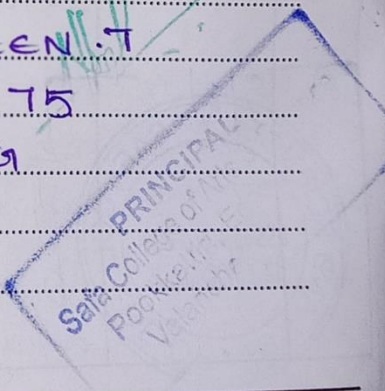 EEN.T
75
PRINCIPAL
Safa College of Arts
Pookkattiri, E
Valanche